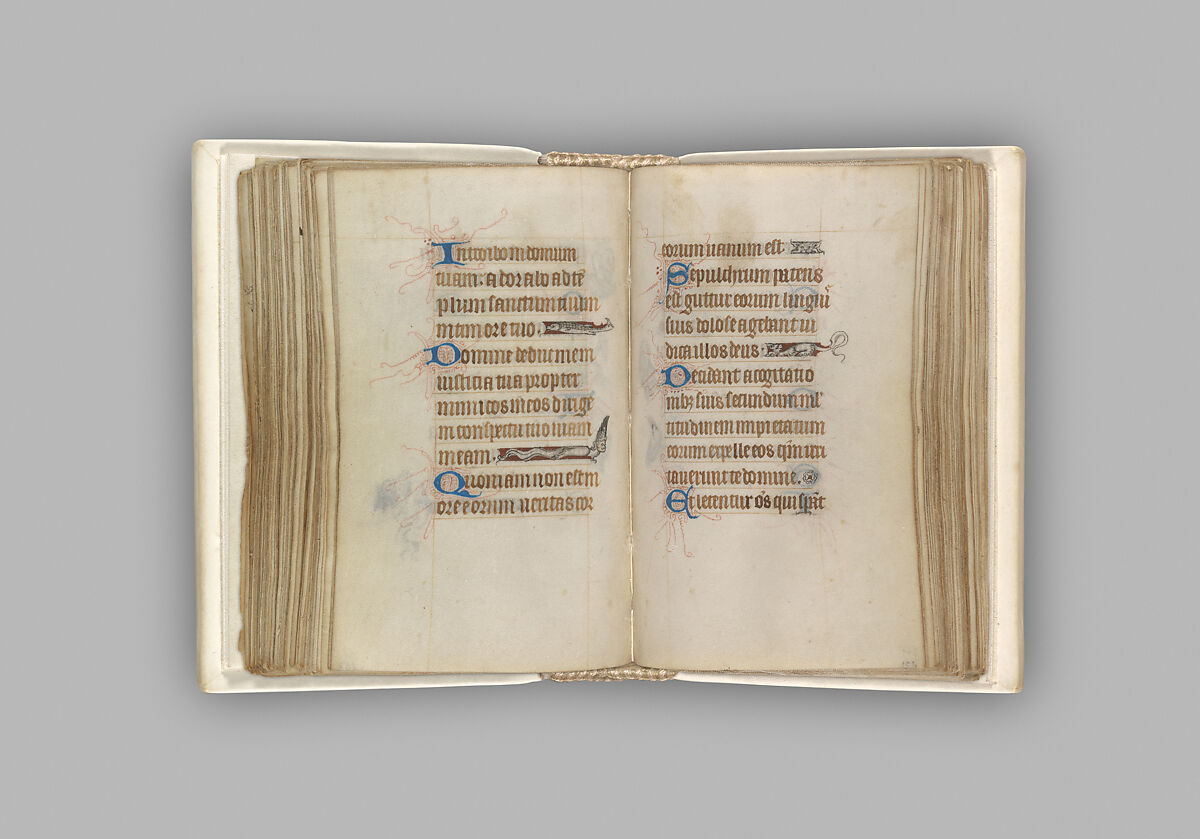 Introibo in domum
tuam: adorabo ad tē
plum sanctum tuum
in timore tuo.
Domine deduc me in
iusticia tua propter
inimicos meos dirige
in conspectu tuo uiam
meam.
Quoniam non est in
ore eorum ueritas cor
eorum uanum est
Sepulchrum patens
est guttur eorum linguis
suis dolose agebant iu
dica illos deus
Decidant a cogitatio
nibꝫ suis secundum ml̄
titudinem impietatum
eorum expelle eos qm̄ irri
tauerunt te domine.
Et letentur oēs qui sperāt